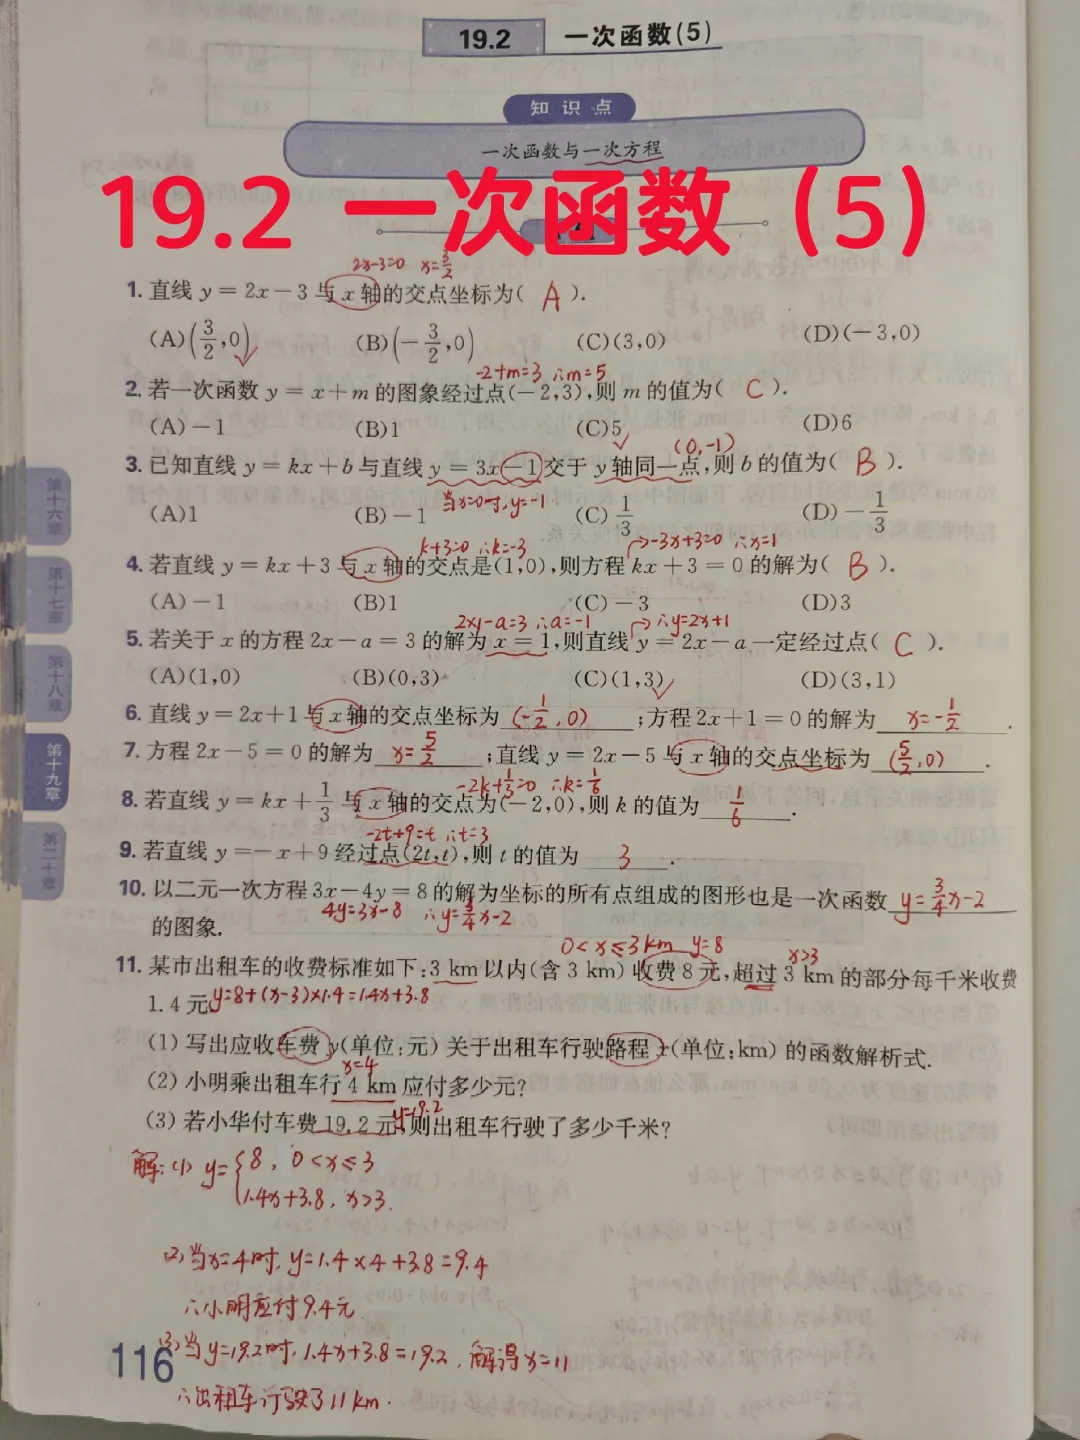 19.2 一次函数(5)
知识点
一次函数与一次方程
19.2 一次函数（5）
2x-3=0 x=3/2
1. 直线 y=2x-3 与 x 轴的交点坐标为( A ).
(A)(3/2,0) ✓ (B)(-3/2,0) (C)(3,0) (D)(-3,0)
-2+m=3 ∴m=5
2. 若一次函数 y=x+m 的图象经过点(-2,3),则 m 的值为( C ).
(A)-1 (B)1 (C)5 ✓ (D)6
(0,-1)
3. 已知直线 y=kx+b 与直线 y=3x-1 交于 y 轴同一点,则 b 的值为( B ).
当x=0时,y=-1
(A)1 (B)-1 (C)1/3 (D)-1/3
k+3=0 ∴k=-3 -3x+3=0 ∴x=1
4. 若直线 y=kx+3 与 x 轴的交点是(1,0),则方程 kx+3=0 的解为( B ).
(A)-1 (B)1 (C)-3 (D)3
2×1-a=3 ∴a=-1 ∴y=2x+1
5. 若关于 x 的方程 2x-a=3 的解为 x=1,则直线 y=2x-a 一定经过点( C ).
(A)(1,0) (B)(0,3) (C)(1,3) ✓ (D)(3,1)
6. 直线 y=2x+1 与 x 轴的交点坐标为 (-1/2,0) ;方程 2x+1=0 的解为 x=-1/2 .
7. 方程 2x-5=0 的解为 x=5/2 ;直线 y=2x-5 与 x 轴的交点坐标为 (5/2,0) .
-2k+1/3=0 ∴k=1/6
8. 若直线 y=kx+1/3 与 x 轴的交点为(-2,0),则 k 的值为 1/6 .
-2t+9=t ∴t=3
9. 若直线 y=-x+9 经过点(2t,t),则 t 的值为 3 .
10. 以二元一次方程 3x-4y=8 的解为坐标的所有点组成的图形也是一次函数 y=3/4x-2
4y=3x-8 ∴y=3/4x-2
的图象.
0<x≤3km y=8 x>3
11. 某市出租车的收费标准如下:3 km 以内(含 3 km) 收费 8 元,超过 3 km 的部分每千米收费
1.4 元. y=8+(x-3)×1.4=1.4x+3.8
(1) 写出应收车费 y(单位:元) 关于出租车行驶路程 x(单位:km) 的函数解析式.
x=4
(2) 小明乘出租车行 4 km 应付多少元?
y=19.2
(3) 若小华付车费 19.2 元,则出租车行驶了多少千米?
解:(1) y={8, 0<x≤3
1.4x+3.8, x>3.
(2)当x=4时, y=1.4×4+3.8=9.4
∴小明应付9.4元.
(3)当y=19.2时, 1.4x+3.8=19.2, 解得x=11
∴出租车行驶了11km.
116
第十六章
第十七章
第十八章
第十九章
第二十章